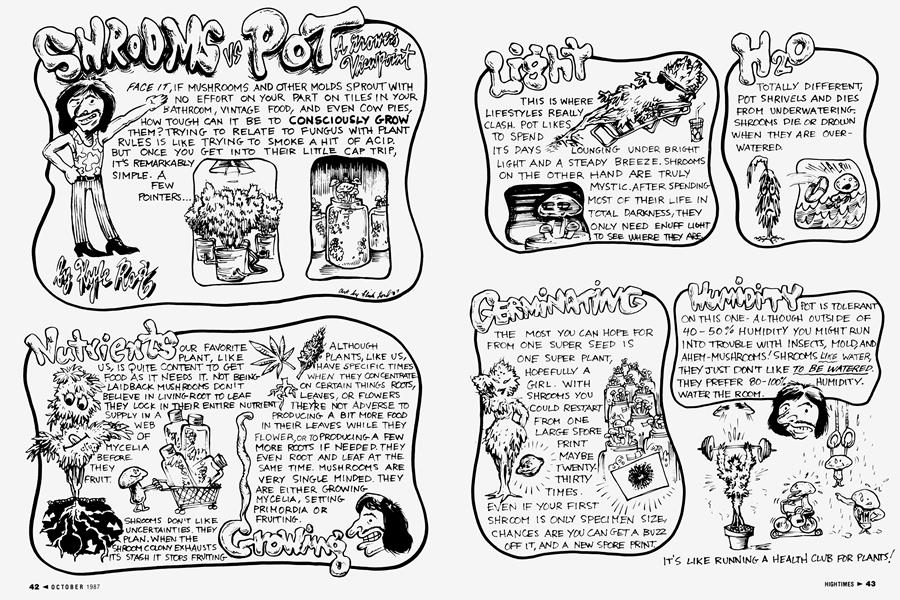 SHROOMS VS POT
A Grower's
Viewpoint
FACE IT, IF MUSHROOMS AND OTHER MOLDS SPROUT WITH
NO EFFORT ON YOUR PART ON TILES IN YOUR
BATHROOM, VINTAGE FOOD, AND EVEN COW PIES,
HOW TOUGH CAN IT BE TO CONSCIOUSLY GROW
THEM? TRYING TO RELATE TO FUNGUS WITH PLANT
RULES IS LIKE TRYING TO SMOKE A HIT OF ACID.
BUT ONCE YOU GET INTO THEIR LITTLE CAP TRIP,
IT'S REMARKABLY
SIMPLE. A
FEW
POINTERS...
by Kyle
Art by
Nutrients
OUR FAVORITE
PLANT, LIKE
US, IS QUITE CONTENT TO GET
FOOD AS IT NEEDS IT. NOT BEING
LAIDBACK MUSHROOMS DON'T
BELIEVE IN LIVING-ROOT TO LEAF
THEY LOCK IN THEIR ENTIRE NUTRIENT
SUPPLY IN A
WEB
OF
MYCELIA
BEFORE
THEY
FRUIT.
SHROOMS DON'T LIKE
UNCERTAINTIES. THEY
PLAN. WHEN THE
SHROOM COLONY EXHAUSTS
ITS STASH IT STOPS FRUITING.
Growing
ALTHOUGH
PLANTS, LIKE US,
HAVE SPECIFIC TIMES
WHEN THEY CONCENTRATE
ON CERTAIN THINGS ROOTS,
LEAVES, OR FLOWERS
THEY'RE NOT ADVERSE TO
PRODUCING A BIT MORE FOOD
IN THEIR LEAVES WHILE THEY
FLOWER, OR TO PRODUCING A FEW
MORE ROOTS IF NEEDED. THEY
EVEN ROOT AND LEAF AT THE
SAME TIME. MUSHROOMS ARE
VERY SINGLE MINDED. THEY
ARE EITHER GROWING
MYCELIA, SETTING
PRIMORDIA OR
FRUITING.
42 ◄ OCTOBER 1987
Light
THIS IS WHERE
LIFESTYLES REALLY
CLASH. POT LIKES
TO SPEND
ITS DAYS LOUNGING UNDER BRIGHT
LIGHT AND A STEADY BREEZE. SHROOMS
ON THE OTHER HAND ARE TRULY
MYSTIC. AFTER SPENDING
MOST OF THEIR LIFE IN
TOTAL DARKNESS, THEY
ONLY NEED ENUFF LIGHT
TO SEE WHERE THEY ARE.
H2O
TOTALLY DIFFERENT,
POT SHRIVELS AND DIES
FROM UNDERWATERING;
SHROOMS DIE OR DROWN
WHEN THEY ARE OVER-
WATERED.
GERMINATING
THE MOST YOU CAN HOPE FOR
FROM ONE SUPER SEED IS
ONE SUPER PLANT,
HOPEFULLY A
GIRL. WITH
SHROOMS YOU
COULD RESTART
FROM ONE
LARGE SPORE
PRINT
MAYBE
TWENTY-
THIRTY
TIMES.
EVEN IF YOUR FIRST
SHROOM IS ONLY SPECIMEN SIZE,
CHANCES ARE YOU CAN GET A BUZZ
OFF IT, AND A NEW SPORE PRINT.
HUMIDITY
POT IS TOLERANT
ON THIS ONE - ALTHOUGH OUTSIDE OF
40-50% HUMIDITY YOU MIGHT RUN
INTO TROUBLE WITH INSECTS, MOLD, AND
AHEM-MUSHROOMS! SHROOMS LIKE WATER,
THEY JUST DON'T LIKE TO BE WATERED.
THEY PREFER 80-100% HUMIDITY.
WATER THE ROOM.
IT'S LIKE RUNNING A HEALTH CLUB FOR PLANTS!
HIGHTIMES ► 43